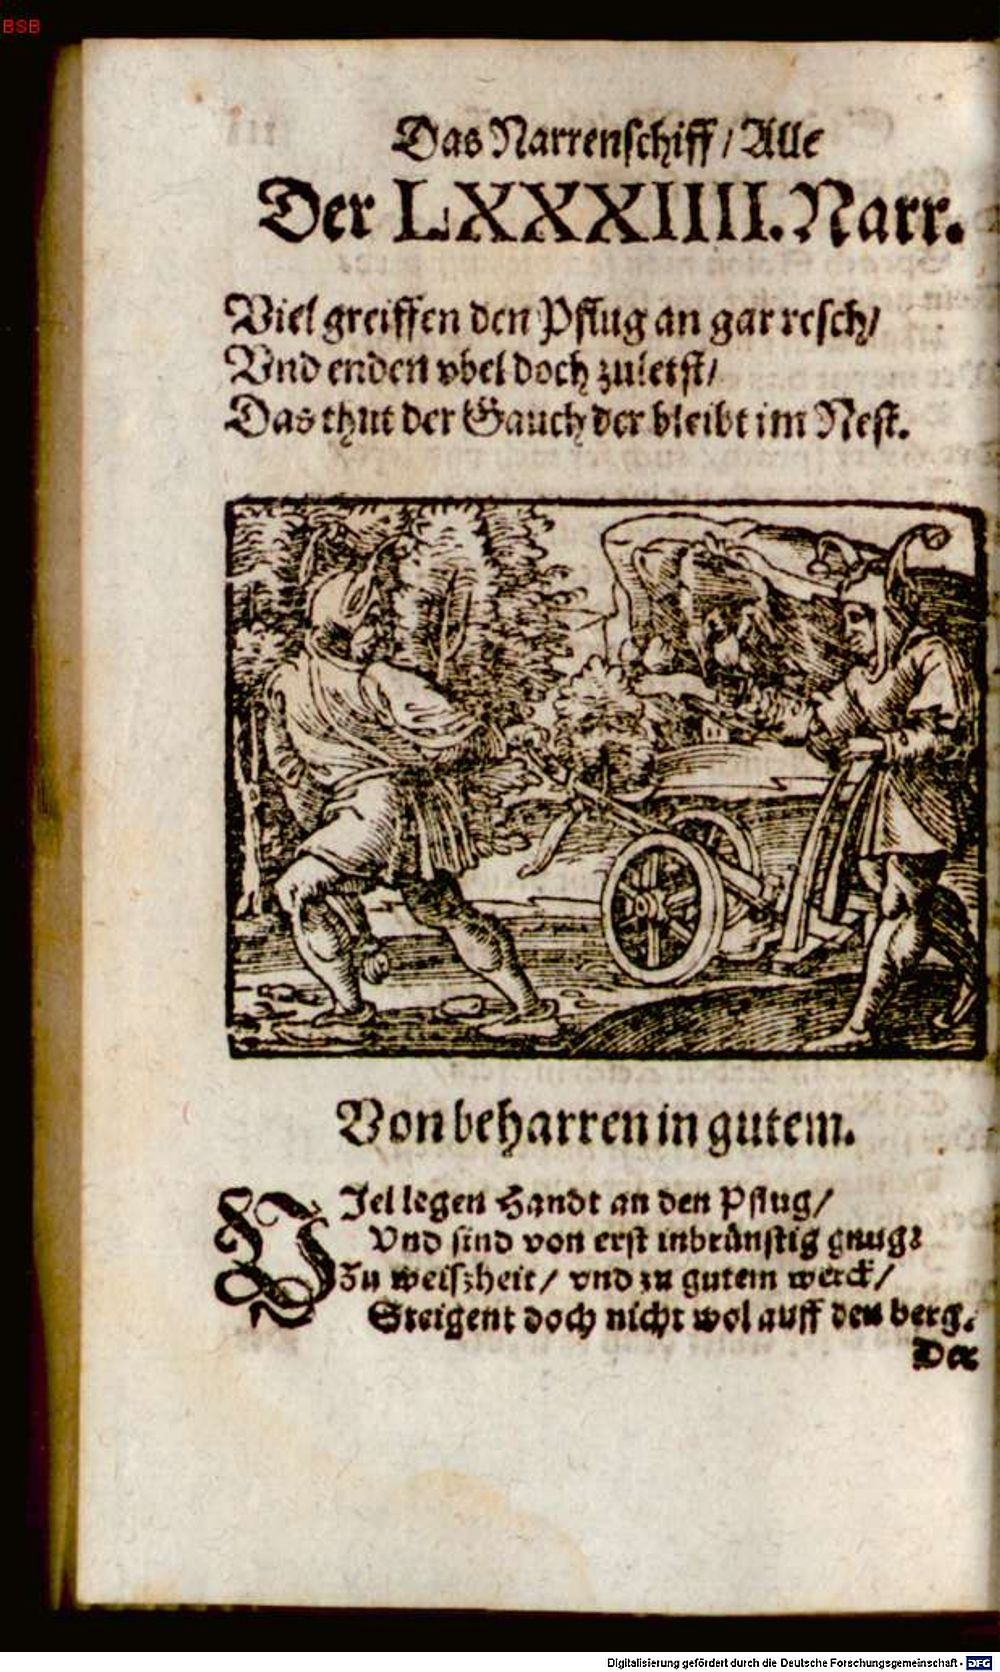 BSB
Das Narrenschiff / Alle
Der LXXXIIII. Narr.
Viel greiffen den Pflug an gar resch/
Vnd enden vbel doch zuletst/
Das thut der Gauch der bleibt im Nest.
Von beharren in gutem.
VJel legen Handt an den Pflug/
Vnd sind von erst inbrünstig gnug:
Zu weiszheit/ vnd zu gutem werck/
Steigent doch nicht wol auff den berg.
Der
Digitalisierung gefördert durch die Deutsche Forschungsgemeinschaft - DFG